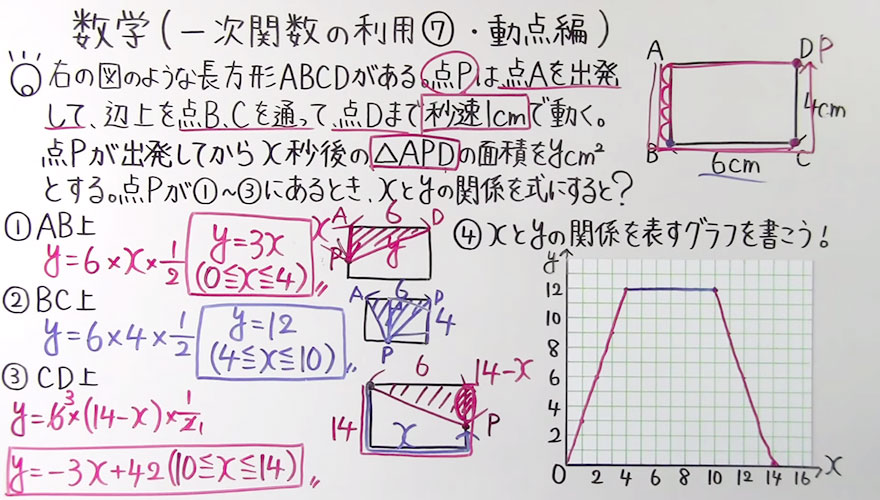 数学(一次関数の利用⑦・動点編)
右の図のような長方形ABCDがある。点Pは、点Aを出発
して、辺上を点B、Cを通って、点Dまで秒速1cmで動く。
点Pが出発してからx秒後の△APDの面積をycm²
とする。点Pが①~③にあるとき、xとyの関係を式にすると?
A
D P
4cm
B
6cm
C
①AB上
y=6×x×1/2
y=3x
(0≦x≦4)
x
A
6
D
P
y
②BC上
y=6×4×1/2
y=12
(4≦x≦10)
A
6
D
4
4
P
③CD上
y=6³×(14-x)×1/2₁
y=-3x+42(10≦x≦14)
6
14-x
14
x
P
④xとyの関係を表すグラフを書こう!
y
12
10
8
6
4
2
0
2 4 6 8 10 12 14 16 x